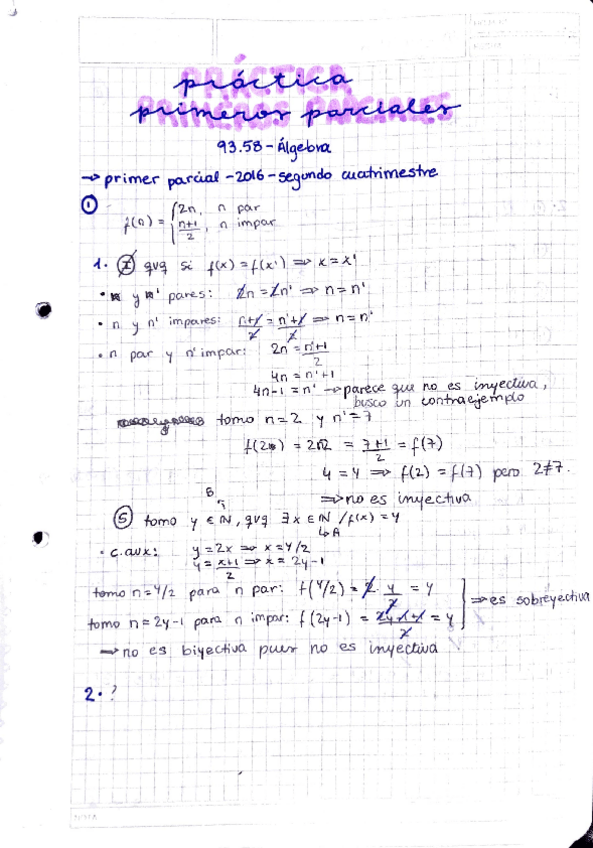 práctica
PRÁCTICA
primeros parciales
PRIMEROS PARCIALES
93.58 - Álgebra
→ primer parcial - 2016 - segundo cuatrimestre
① f(n) = { 2n, n par
n+1/2, n impar
1. Ⓘ qvq si f(x) = f(x') ⇒ x = x'
• n y n' pares: 2n = 2n' ⇒ n = n'
• n y n' impares: n+1/2 = n'+1/2 ⇒ n = n'
• n par y n' impar: 2n = n'+1/2
4n = n'+1
4n-1 = n' → parece que no es inyectiva,
busco un contraejemplo
tomo n=2 y n'=7
f(2) = 2·2 = 7+1/2 = f(7)
4 = 4 ⇒ f(2) = f(7) pero 2≠7.
⇒ no es inyectiva
B
Ⓢ tomo y ∈ ℕ, qvq ∃ x ∈ ℕ / f(x) = y
↳ A
• c. aux: y = 2x ⇒ x = y/2
y = x+1/2 ⇒ x = 2y-1
tomo n = y/2 para n par: f(y/2) = 2 · y/2 = y
⇒ es sobreyectiva
tomo n = 2y-1 para n impar: f(2y-1) = 2y-1+1/2 = y
→ no es biyectiva pues no es inyectiva
2. ?